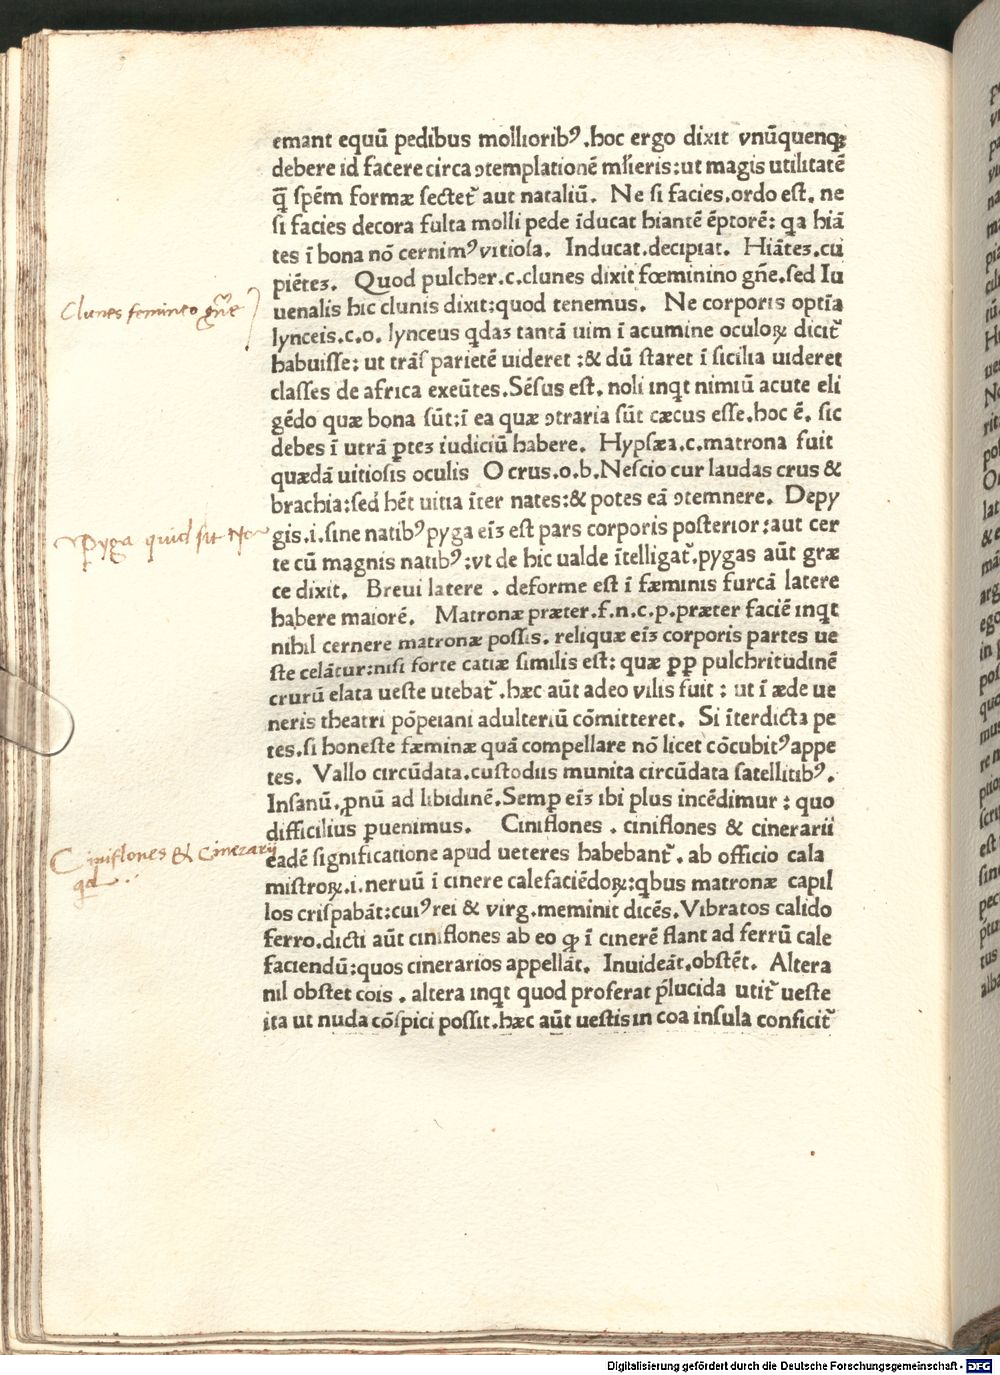 emant equū pedibus molliorib⁹.hoc ergo dixit vnūquenq;
debere id facere circa ↄtemplationē ml̄ieris:ut magis utilitatē
q̄ spēm formæ sectet̃ aut nataliū. Ne si facies.ordo est. ne
si facies decora fulta molli pede īducat hiantē ēptorē: qa hiā
tes ī bona nō cernim⁹ vitiosa. Inducat.decipiat. Hiāteꝫ.cu
piēteꝫ. Quod pulcher.c.clunes dixit fœminino gn̄e.sed Iu
Clunes feminino gn̄e
uenalis hic clunis dixit:quod tenemus. Ne corporis optīa
lynceis.c.o. lynceus qdaꝫ tantā uim ī acumine oculoꝝ dicit̃
habuisse: ut trās parietē uideret :& dū staret ī sicilia uideret
classes de africa exeūtes.Sēsus est. noli inqt nimiū acute eli
gēdo quæ bona sūt:ī ea quæ ↄtraria sūt cæcus esse.hoc ē. sic
debes ī utrā ꝑteꝫ iudiciū habere. Hypsæa.c.matrona fuit
quædā uitiosis oculis O crus.o.b.Nescio cur laudas crus &
brachia:sed hēt uitia īter nates:& potes eā ↄtemnere. Depy
Pyga quid sit
gis.i.sine natib⁹ pyga eīꝫ est pars corporis posterior:aut cer
te cū magnis natib⁹:vt de hic ualde ītelligat̃.pygas aūt græ
ce dixit. Breui latere . deforme est ī fæminis furcā latere
habere maiorē. Matronæ præter.f.n.c.p.præter faciē inqt
nihil cernere matronæ possis. reliquæ eīꝫ corporis partes ue
ste celātur:nisi forte catiæ similis est: quæ ꝓp pulchritudinē
crurū elata ueste utebat̃.hæc aūt adeo vilis fuit : ut ī æde ue
neris theatri pōpeiani adulteriū cōmitteret. Si īterdicta pe
tes.si honeste fæminæ quā compellare nō licet cōcubit⁹ appe
tes. Vallo circūdata.custodiis munita circūdata satellitib⁹.
Insanū.ꝓnū ad libidinē.Semꝑ eīꝫ ibi plus incēdimur : quo
difficilius ꝑuenimus. Ciniflones . ciniflones & cinerarii
Ciniflones & Cinerarij
qd
eadē significatione apud ueteres habebant̃. ab officio cala
mistroꝝ.i.neruū ī cinere calefaciēdoꝝ:qbus matronæ capil
los crispabāt:cui⁹ rei & virg.meminit dicēs.Vibratos calido
ferro.dicti aūt ciniflones ab eo ꝙ ī cinerē flant ad ferrū cale
faciendū:quos cinerarios appellāt. Inuideāt.obstēt. Altera
nil obstet cois . altera inqt quod proferat p̄lucida utit̃ ueste
ita ut nuda cōspici possit.hæc aūt uestis in coa insula conficit̃
Digitalisierung gefördert durch die Deutsche Forschungsgemeinschaft - DFG